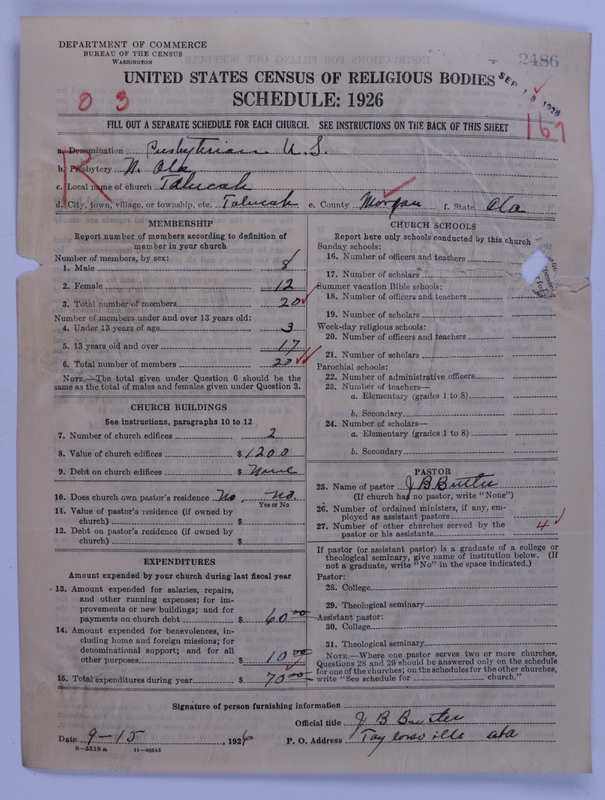 DEPARTMENT OF COMMERCE
BUREAU OF THE CENSUS
WASHINGTON
2486
UNITED STATES CENSUS OF RELIGIOUS BODIES
SEP 18 1926
0 3
SCHEDULE: 1926
FILL OUT A SEPARATE SCHEDULE FOR EACH CHURCH. SEE INSTRUCTIONS ON THE BACK OF THIS SHEET
167
R
a. Denomination Presbyterian U. S.
b. Presbytery N. Ala
c. Local name of church Talucah
d. City, town, village, or township, etc. Talucah e. County Morgan f. State Ala
MEMBERSHIP
Report number of members according to definition of
member in your church
Number of members, by sex:
1. Male 8
2. Female 12
3. Total number of members 20
Number of members under and over 13 years old:
4. Under 13 years of age 3
5. 13 years old and over 17
6. Total number of members 20
NOTE.—The total given under Question 6 should be the
same as the total of males and females given under Question 3.
CHURCH BUILDINGS
See instructions, paragraphs 10 to 12
7. Number of church edifices 2
8. Value of church edifices $ 1200
9. Debt on church edifices $ None
10. Does church own pastor's residence No. No.
Yes or No
11. Value of pastor's residence (if owned by
church) $
12. Debt on pastor's residence (if owned by
church) $
EXPENDITURES
Amount expended by your church during last fiscal year
13. Amount expended for salaries, repairs,
and other running expenses; for im-
provements or new buildings; and for
payments on church debt $ 60.00
14. Amount expended for benevolences, in-
cluding home and foreign missions; for
denominational support; and for all
other purposes $ 10.00
15. Total expenditures during year $ 70.00
CHURCH SCHOOLS
Report here only schools conducted by this church
Sunday schools:
16. Number of officers and teachers
17. Number of scholars
Summer vacation Bible schools:
18. Number of officers and teachers
19. Number of scholars
Week-day religious schools:
20. Number of officers and teachers
21. Number of scholars
Parochial schools:
22. Number of administrative officers
23. Number of teachers—
a. Elementary (grades 1 to 8)
b. Secondary
24. Number of scholars—
a. Elementary (grades 1 to 8)
b. Secondary
PASTOR
25. Name of pastor J B Butter
(If church has no pastor, write "None")
26. Number of ordained ministers, if any, em-
ployed as assistant pastors
27. Number of other churches served by the
pastor or his assistants 4
If pastor (or assistant pastor) is a graduate of a college or
theological seminary, give name of institution below. (If
not a graduate, write "No" in the space indicated.)
Pastor:
28. College
29. Theological seminary
Assistant pastor:
30. College
31. Theological seminary
NOTE.—Where one pastor serves two or more churches,
Questions 28 and 29 should be answered only on the schedule
for one of the churches; on the schedules for the other churches,
write "See schedule for church."
Signature of person furnishing information
Official title J B Butter
Date 9-15, 1926 P. O. Address Taylorsville Ala
8-5518 a